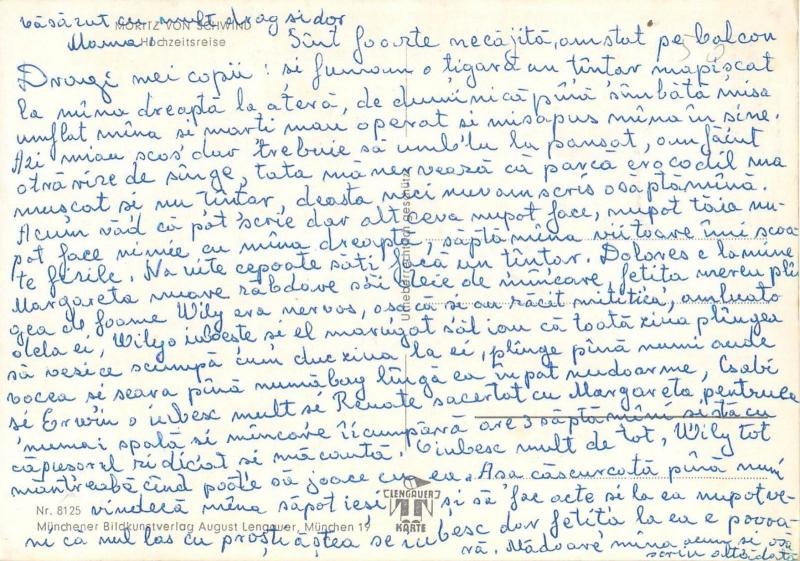 văsăzut cu mult drag si dor
MORITZ VON SCHWIND
Hochzeitsreise
Mama!
Sînt foarte necăjită, am stat pe balcon
Dragi mei copii: si fumam o tigară un tîntar mapiscat
la mîna dreaptă la ateră, de duminică pînă sîmbătă misa
umflat mîna si marti mau operat si misapus mîna în sine.
Azi miau scos dar trebuie să umblu la pansat, am făcut
otrăvize de sînge, tata mă nervează că parcă crocodil ma
muscat si nu tîntar, deasta nici nuvam scris o săptămînă.
Acum văd că pot scrie dar altceva nupot face, nupot tăia nu-
pot face nimic cu mîna dreaptă, săptămîna viitoare îmi scoa-
te firile. Na uite cepoate săti facă un tîntar. Dolores e la mine
Margareta nuare răbdare săi deie de mîncare, fetita mereu plî
gea de foame Wily era nervos, osă că si au răcit mititica, am luato
dela ei, Wily o iubeste si el marugat săl iau că toată ziua plîngea
să vesice scumpă cum duc ziua la ei, plînge pînă numi aude
vocea si seara pînă numă bag lîngă ea în pat nudoarme, Csabi
si Erwin o iubesc mult si Renate sacertat cu Margareta, pentruca
numai spală si mîncare îi cumpără are 3 săptămîni si stă cu
căpusorul ridicat si măcaută. O iubesc mult de tot, Wily tot
mântreabă cînd poate să joace cu ea. Asa căscurcată pînă numi
vindecă mîna săpot iesi și să fac acte si la ea nupotve-
Nr. 8125
LENGAUER
KARTE
Münchner Bildkunstverlag August Lengauer, München 19
ni că nul las cu prosti ăstea se iubesc dar fetita la ea e povoa-
ră. Mădoare mîna acum si osă
scriu altădată
Urheberrechtlich geschützt